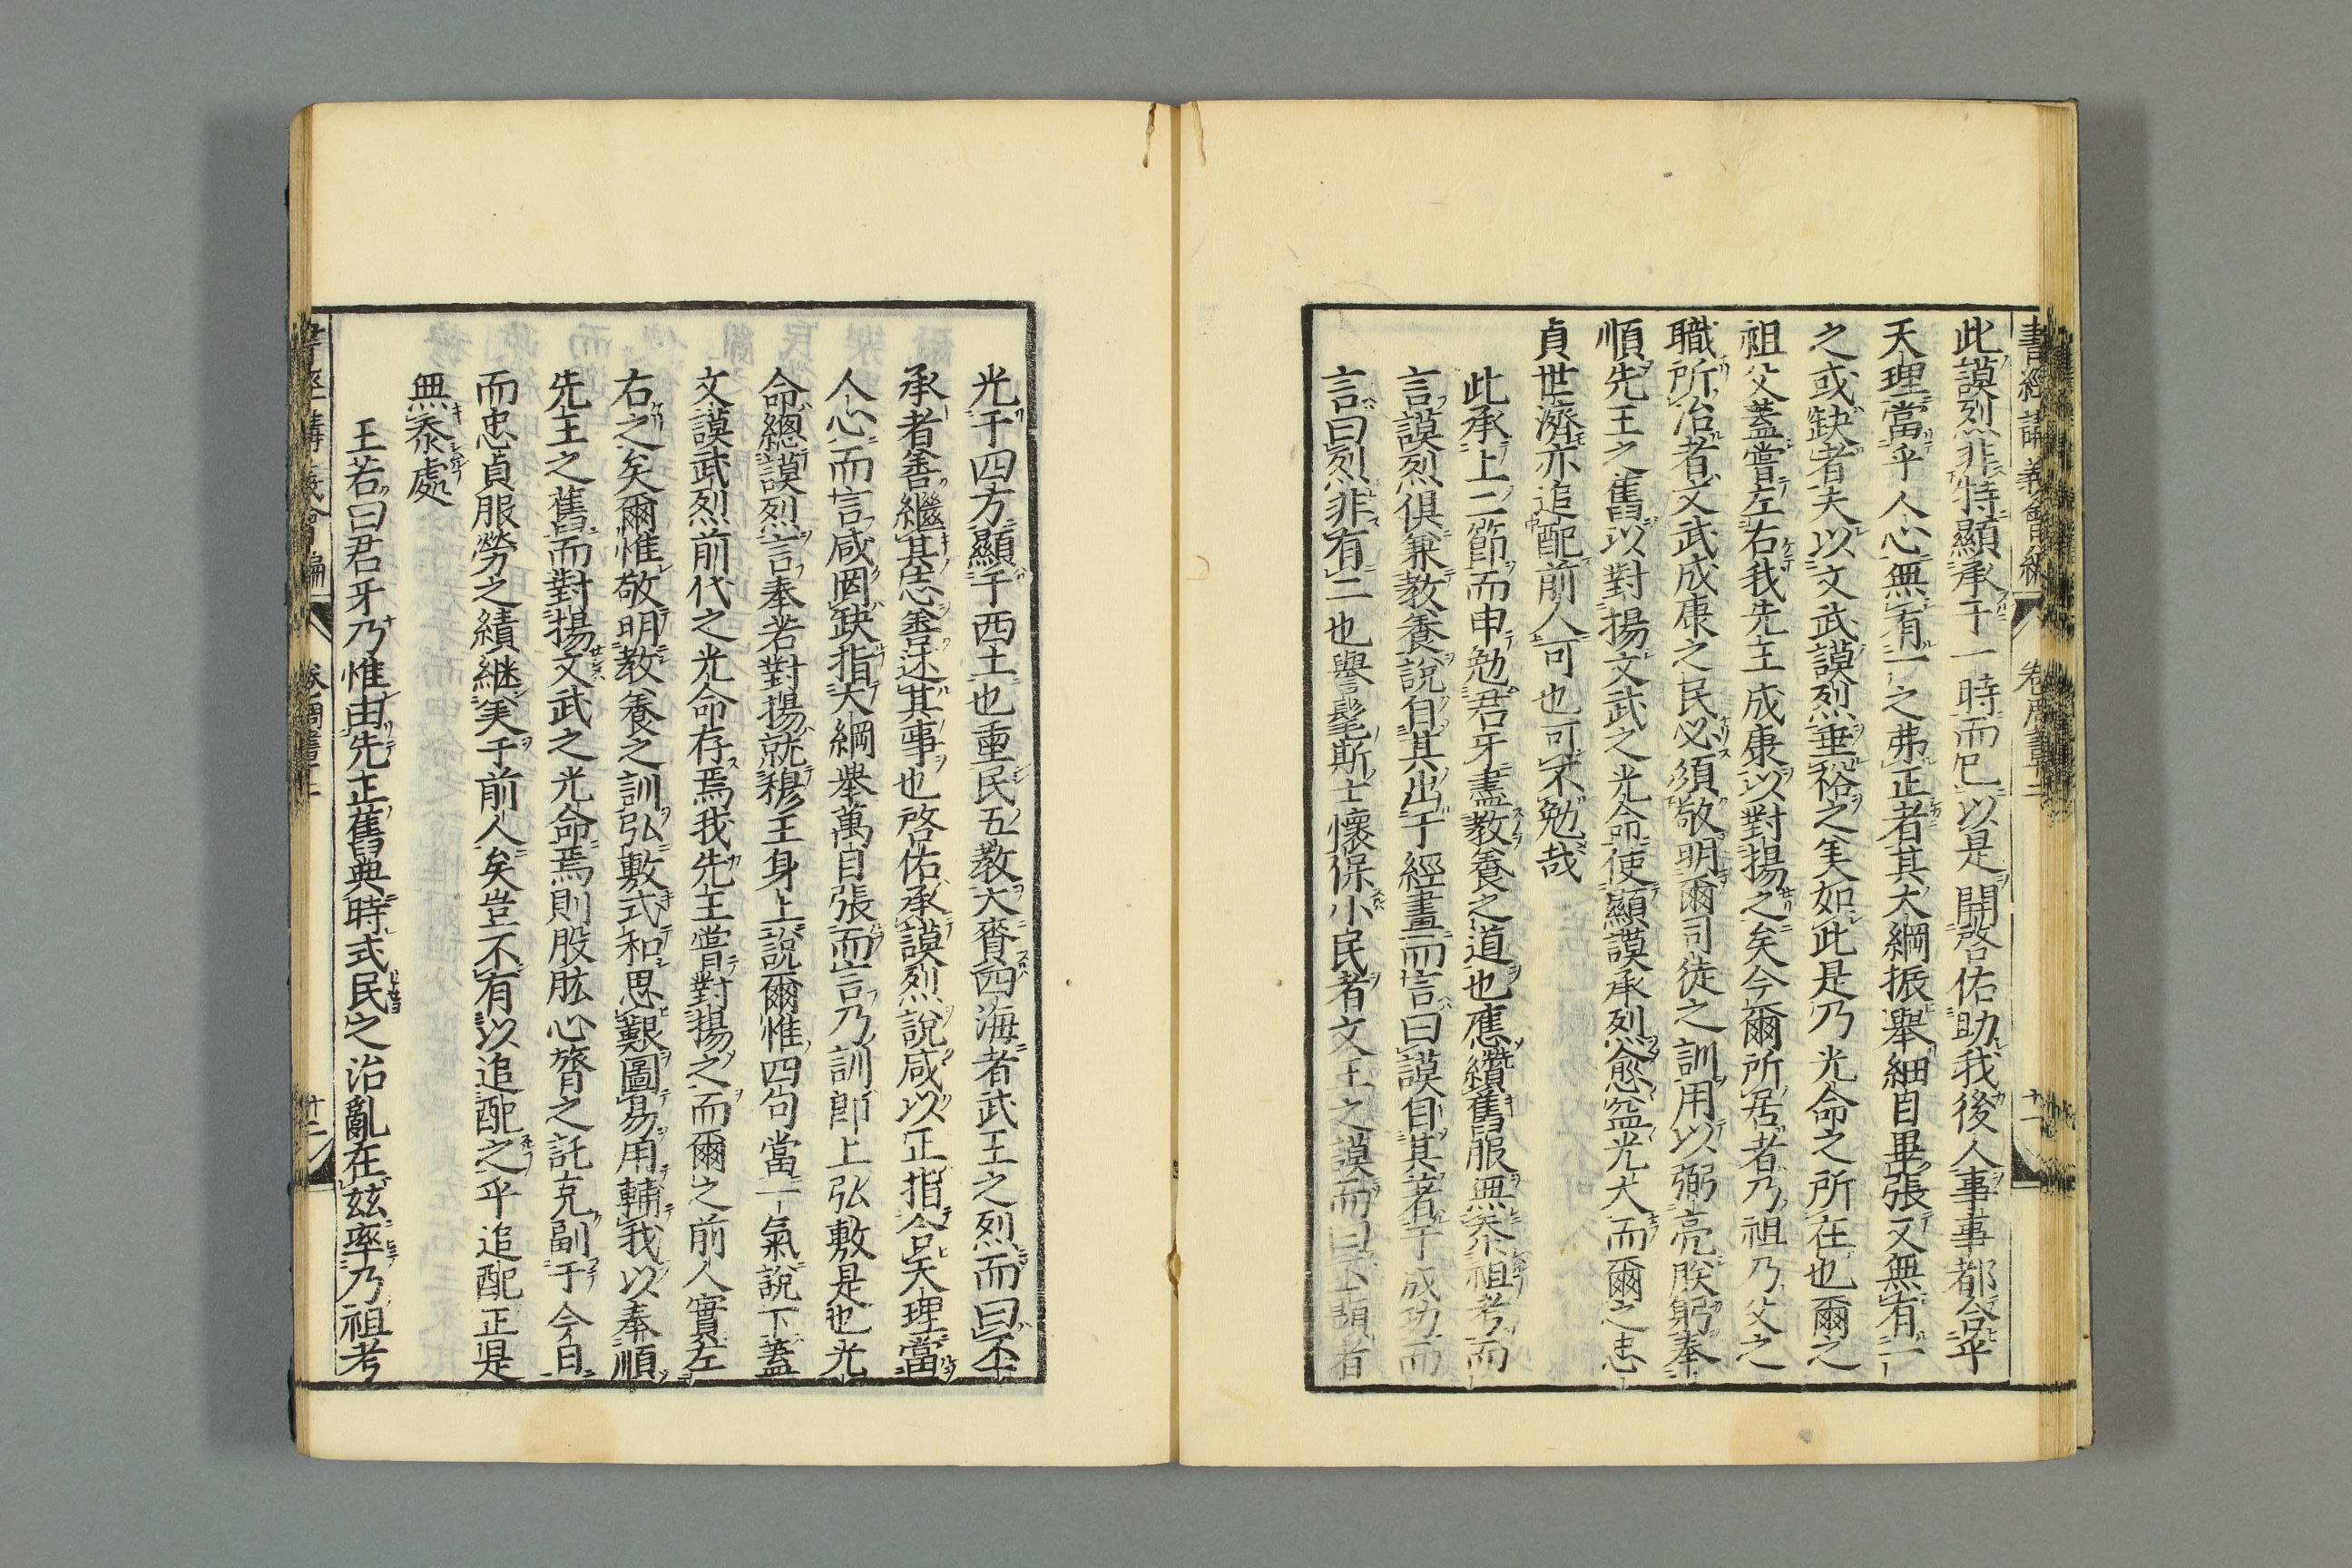 書經講義會編　卷周書十二　十一
此謨烈非特顯承于一時而已以是開啓佑助我後人事事都合乎
天理當乎人心無有一之弗正者其大綱振舉細目畢張又無有一
之或缺者夫以文武謨烈垂裕之美如此是乃光命之所在也爾之
祖父蓋嘗左右我先王成康以對揚之矣今爾所居者乃祖乃父之
職所治者文武成康之民必須敬明爾司徒之訓用以弼亮朕躬奉
順先王之舊以對揚文武之光命使顯謨承烈愈益光大而爾之忠
貞世濟亦追配前人可也可不勉哉
此承上二節而申勉君牙盡教養之道也應纘舊服無忝祖考而
言謨烈俱兼教養說自其出于經畫而言曰謨自其著于成功而
言曰烈非有二也譽髦斯士懷保小民者文王之謨而曰丕顯者
光于四方顯于西土也重民五教大賚四海者武王之烈而曰丕
承者善繼其志善述其事也啓佑承謨烈說咸以正指合天理當
人心而言咸罔缺指大綱舉萬目張而言乃訓卽上弘敷是也光
命總謨烈言奉若對揚就穆王身上說爾惟四句當一氣說下蓋
文謨武烈前代之光命存焉我先王嘗對揚之而爾之前人實左
右之矣爾惟敬明教養之訓弘敷式和思艱圖易用輔我以奉順
先王之舊而對揚文武之光命焉則股肱心膂之託克副于今日
而忠貞服勞之績継美于前人矣豈不有以追配之乎追配正是
無忝處
王若曰君牙乃惟由先正舊典時式民之治亂在玆率乃祖考
書經講義會編　卷周書十二　十二